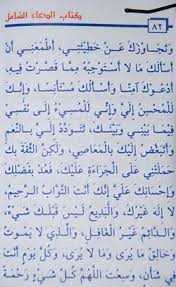 كتاب الدعاء الشامل
٨٢
وَتَجَاوُزَكَ عَنْ خَطِيئَتِي، أَطْمَعَنِي أَنْ
أَسْأَلَكَ مَا لَا أَسْتَوْجِبُهُ مِمَّا قَصَّرْتُ فِيهِ،
أَدْعُوكَ آمِنًا وَأَسْأَلُكَ مُسْتَأْنِسًا، وَإِنَّكَ
لَلْمُحْسِنُ إِلَيَّ وَإِنِّي لَلْمُسِيءُ إِلَى نَفْسِي
فِيمَا بَيْنِي وَبَيْنَكَ، تَتَوَدَّدُ إِلَيَّ بِالنِّعَمِ
وَأَتَبَغَّضُ إِلَيْكَ بِالْمَعَاصِي، وَلَكِنَّ الثِّقَةَ بِكَ
حَمَلَتْنِي عَلَى الْجَرَاءَةِ عَلَيْكَ، فَعُدْ بِفَضْلِكَ
وَإِحْسَانِكَ عَلَيَّ إِنَّكَ أَنْتَ التَّوَّابُ الرَّحِيمُ،
لَا إِلَهَ غَيْرُكَ، وَالْبَدِيعُ لَيْسَ قَبْلَكَ شَيْءٌ،
وَالدَّائِمُ غَيْرُ الْغَافِلِ، وَالَّذِي لَا يَمُوتُ
وَخَالِقُ مَا يُرَى، وَمَا لَا يُرَى، وَكُلَّ يَوْمٍ أَنْتَ
فِي شَأْنٍ، وَسِعْتَ اللَّهُمَّ كُلَّ شَيْءٍ رَحْمَةً